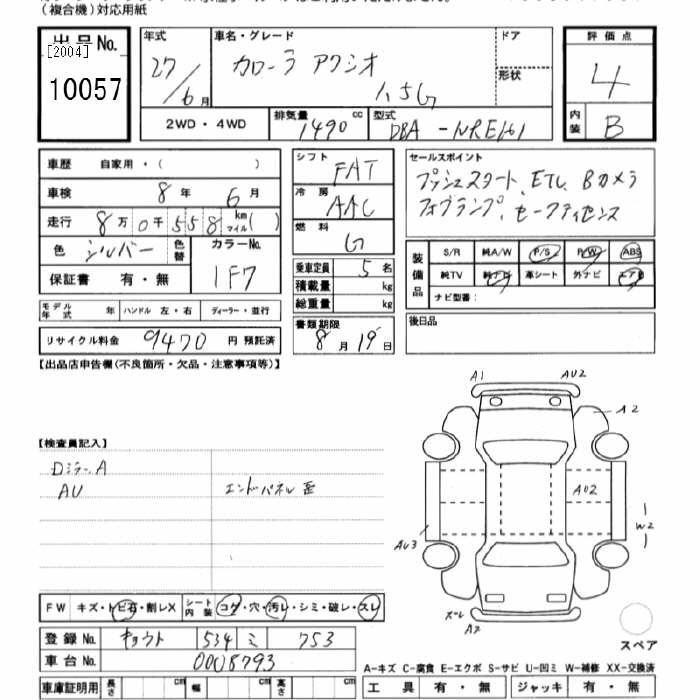 (複合機)対応用紙
出品No.
[2004]
10057
年式 27/6月
車名・グレード カローラ アクシオ 1.5G
ドア
形状
2WD・4WD
排気量 1490 cc
型式 DBA-NRE161
評価点 4
内装 B
車歴 自家用・( )
車検 8年 6月
走行 8万0千558 km マイル( )
色 シルバー
色替
カラーNo. 1F7
保証書 有・無
モデル年式 年 ハンドル 左・右 ディーラー・並行
リサイクル料金 9470 円 預託済
シフト FAT
冷房 AAC
燃料 G
乗車定員 5名
積載量 kg
総重量 kg
書類期限 8月19日
セールスポイント
プッシュスタート、ETC、Bカメラ
フォグランプ、セーフティセンス
装備品
S/R 純A/W P/S P/W ABS
純TV 純ナビ 革シート 外ナビ エアB
ナビ型番:
後日品
【出品店申告欄(不良箇所・欠品・注意事項等)】
【検査員記入】
DミラーA
AU
エンドパネル歪
A1
AU2
A2
AU2
W2
AU3
ズレ
A2
スペア
FW キズ・トビ石・割レX
シート内装 コゲ・穴・汚レ・シミ・破レ・スレ
登録No. キョウト 534 ミ 753
車台No. 0008793
車庫証明用 長さ cm 幅 cm 高さ cm
A-キズ C-腐食 E-エクボ S-サビ U-凹ミ W-補修 XX-交換済
工具 有・無 ジャッキ 有・無